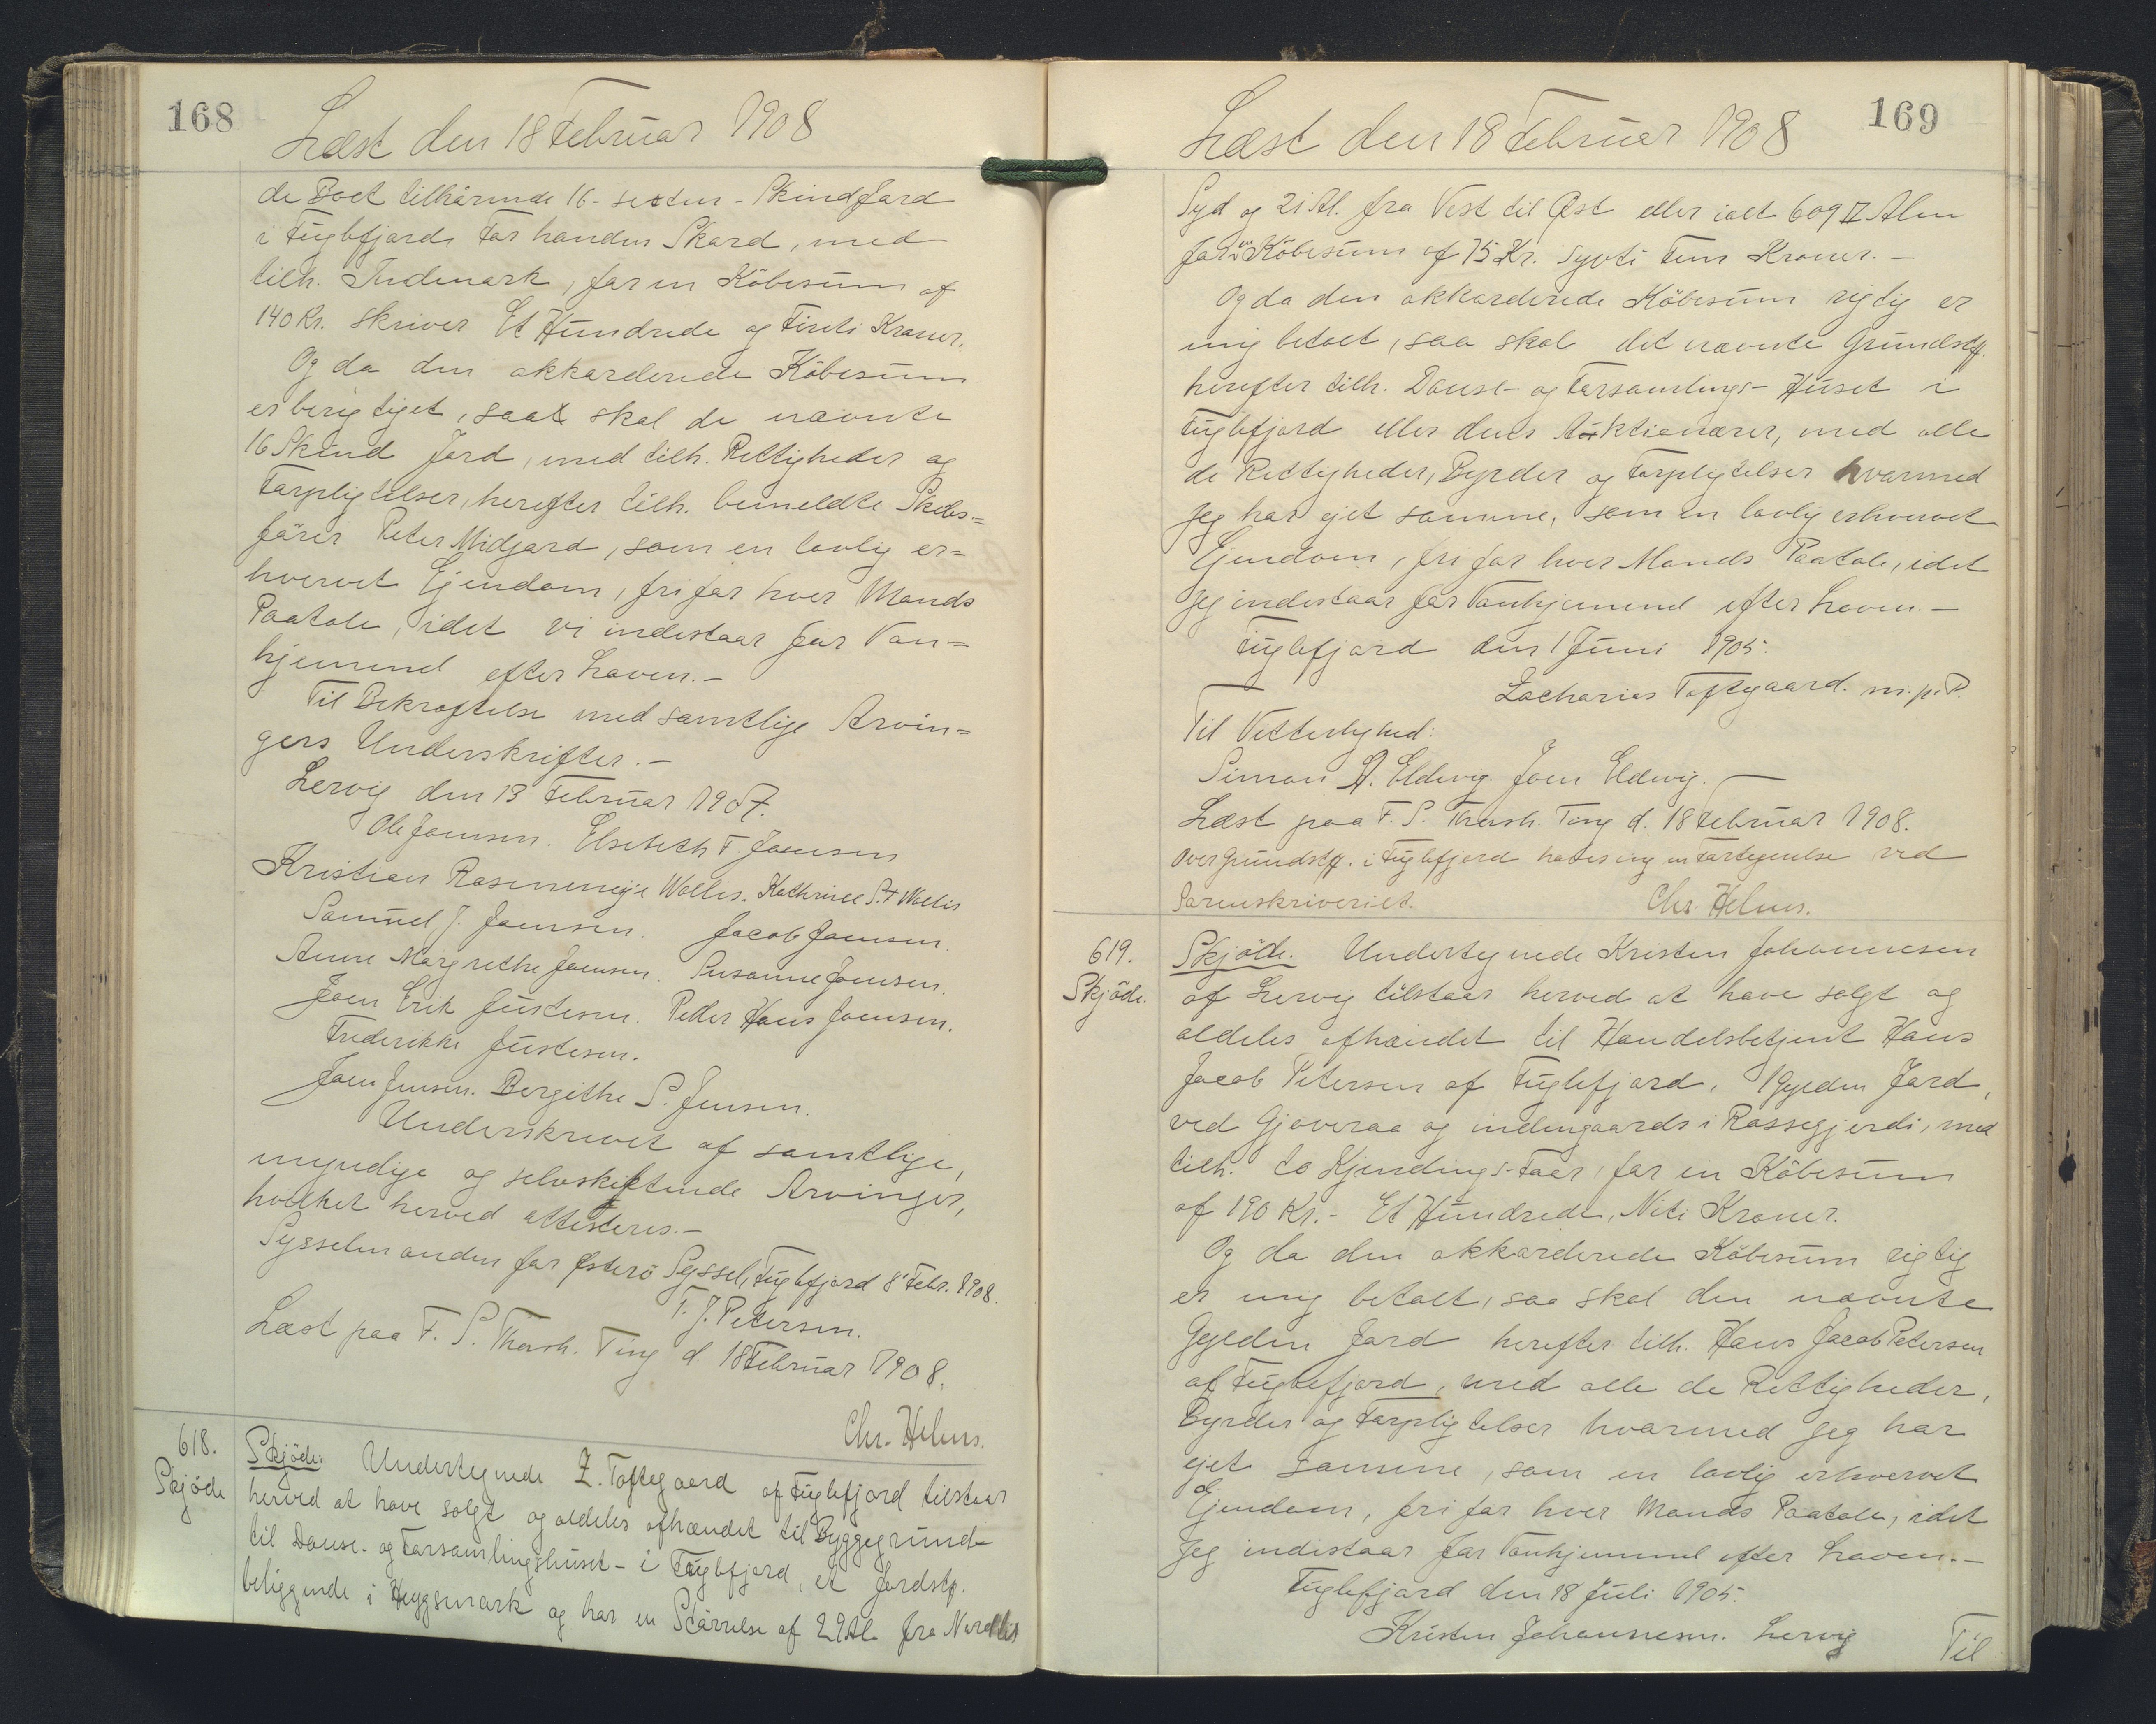 168
Læst den 18 Februar 1908
de Boet tilhörende 16 - sexten - Skind Jord
i Fuglefjords For handen Skard, med
tilh. Indmark, for en Köbesum af
140 Kr. skriver Et Hundrede og Firti Kroner.
Og da den akkorderede Köbesum
er berigtiget, saa skal de nævnte
16 Skind Jord, med tilh. Rettigheder og
Forpligtelser, herefter tilh. bemeldte Skibs=
förer Peter Midjord, som en lovlig er=
hvervet Ejendom, fri for hver Mands
Paatale, idet vi indestaar for Van=
hjemmel efter Loven.-
Til Bekræftelse med samtlige Arvin=
gers Underskrifter.-
Lervig den 13 Februar 1907.
Ole Joensen. Elsebeth F. Joensen
Kristian Rasmus Wallis. Kathrine S. Wallis
Samuel J. Joensen. Jacob Joensen.
Anne Margrethe Joensen. Susanne Joensen.
Joen Erik Justesen. Peder Hans Joensen.
Frederikke Justesen.
Joen Jensen. Bergithe S. Jensen.
Underskrevet af samtlige,
myndige og selvskiftende Arvinger,
hvilket herved attesteres.-
Sysselmanden for Österö Syssel, Fuglefjord 8' Febr. 1908.
T. J. Petersen.
Læst paa F. S. Thorsh. Ting d. 18 Februar 1908.
Chr. Helms.
618.
Skjöde
Skjöde. Undertegnede Z. Toftegaard af Fuglefjord tilstaar
herved at have solgt og aldeles afhændet til Byggegrund-
til Danse- og Forsamlingshuset - i Fuglefjord, et Jordstk.
beliggende i Heygsmark og har en Störrelse af 29 Al. fra Nord til
169
Læst den 18 Februar 1908
Syd og 21 Al. fra Vest til Øst eller ialt 609 □ Alen
for en Köbesum af 75 Kr. Syvti Fem Kroner.-
Og da den akkorderede Köbesum rigtig er
mig betalt, saa skal det nævnte Grundstk.
herefter tilh. Danse- og Forsamlings-Huset i
Fuglefjord eller dens Aktionærer, med alle
de Rettigheder, Byrder og Forpligtelser hvormed
jeg har ejet samme, som en lovlig erhvervet
Ejendom, fri for hver Mands Paatale, idet
jeg indestaar for Vanhjemmel efter Loven.-
Fuglefjord den 1 Juni 1905.
Zacharias Toftegaard. m. p. P.
Til Vitterlighed:
Simon A. Eldevig. Joen Eldevig.
Læst paa F. S. Thorsh. Ting d. 18 Februar 1908.
Over Grundstk. i Fuglefjord haves ingen Fortegnelse ved
Sorenskriveriet. Chr. Helms.
619.
Skjöde.
Skjöde. Undertegnede Kristen Johannesen
af Lervig tilstaar herved at have solgt og
aldeles afhændet til Handelsbetjent Hans
Jacob Petersen af Fuglefjord, 1 Gylden Jord,
ved Gjoveraa og indengaards i Rossegjerdi, med
tilh. to Kjendings-Faar, for en Köbesum
af 190 Kr.- Et Hundrede, Niti Kroner.
Og da den akkorderede Köbesum rigtig
er mig betalt, saa skal den nævnte
Gylden Jord herefter tilh. Hans Jacob Petersen
af Fuglefjord, med alle de Rettigheder,
Byrder og Forpligtelser hvormed jeg har
ejet samme, som en lovlig erhvervet
Ejendom, fri for hver Mands Paatale, idet
jeg indestaar for Vanhjemmel efter Loven.-
Fuglefjord den 18 Juli 1905.
Kristen Johannesen. Lervig
Til